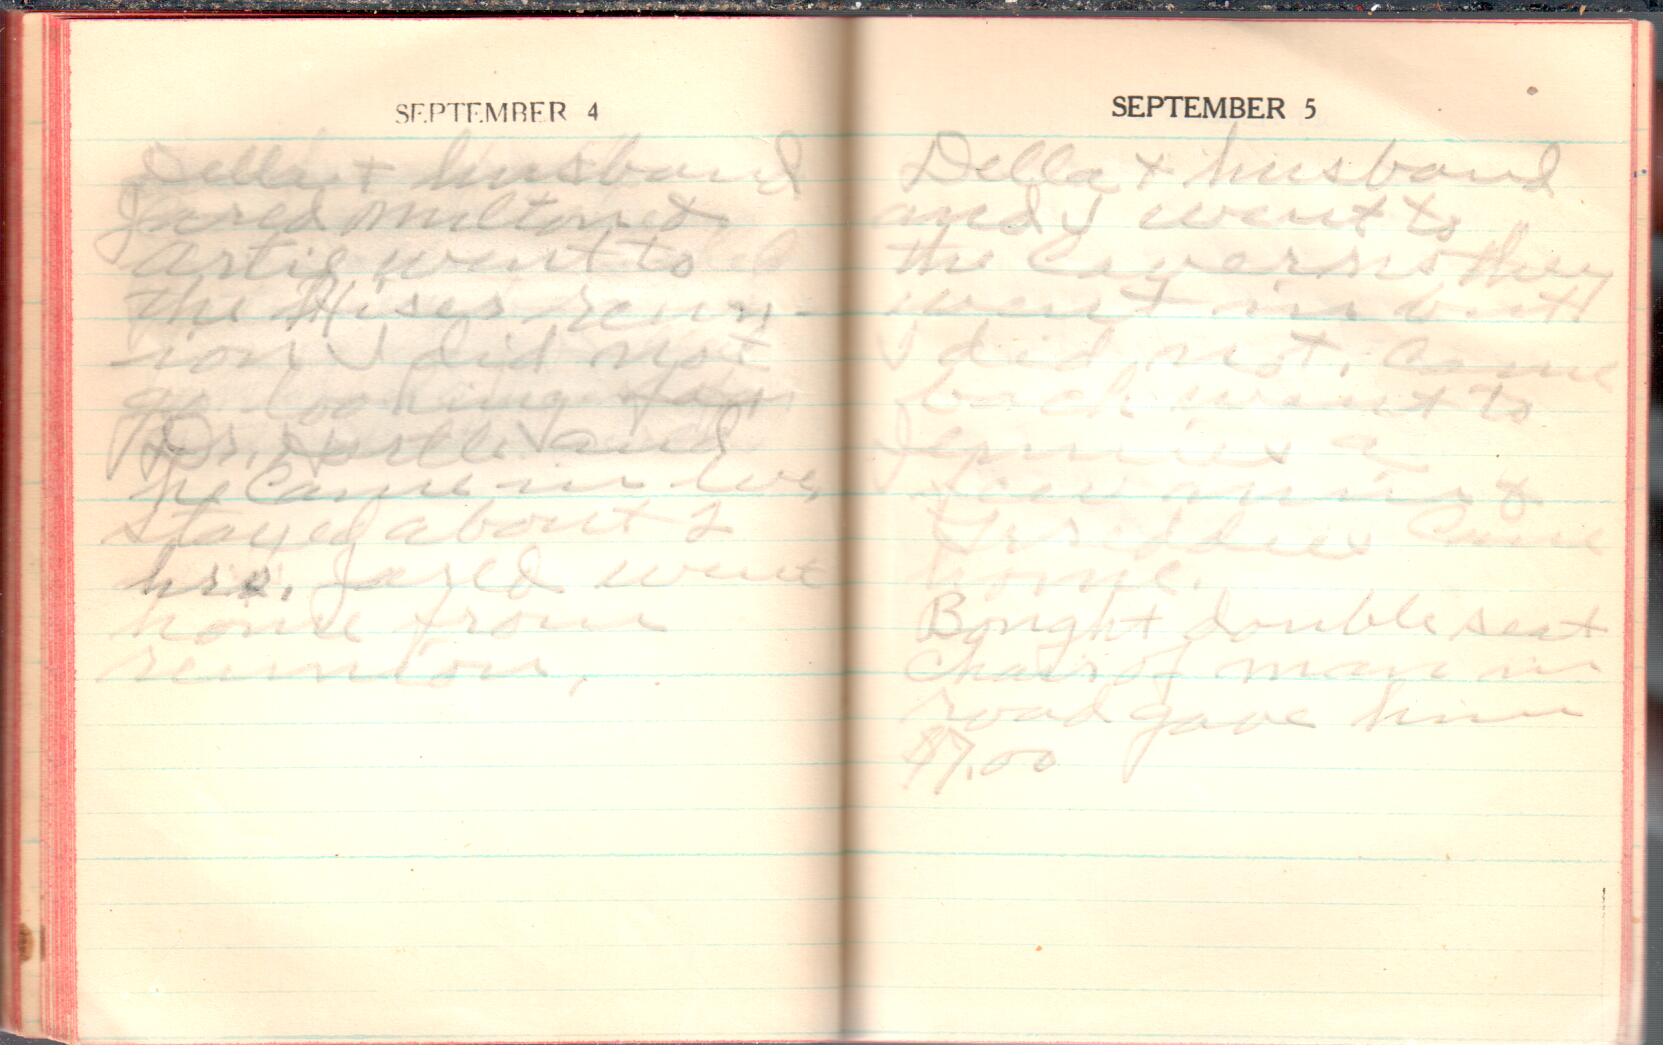 SEPTEMBER 4
Della + husband
Jared Milton &
Artie went to
the Hiser reun-
ion I did not
go looking for
Dr. and
he came in eve,
stayed about 2
hrs. Jared went
home from
reunion,
SEPTEMBER 5
Della + husband
and I went to
the Caverns they
went in but
I did not. Came
back went to
Jennies a
few mins &
Freddies Came
home.
Bought double seat
chair of man in
road gave him
$7.00